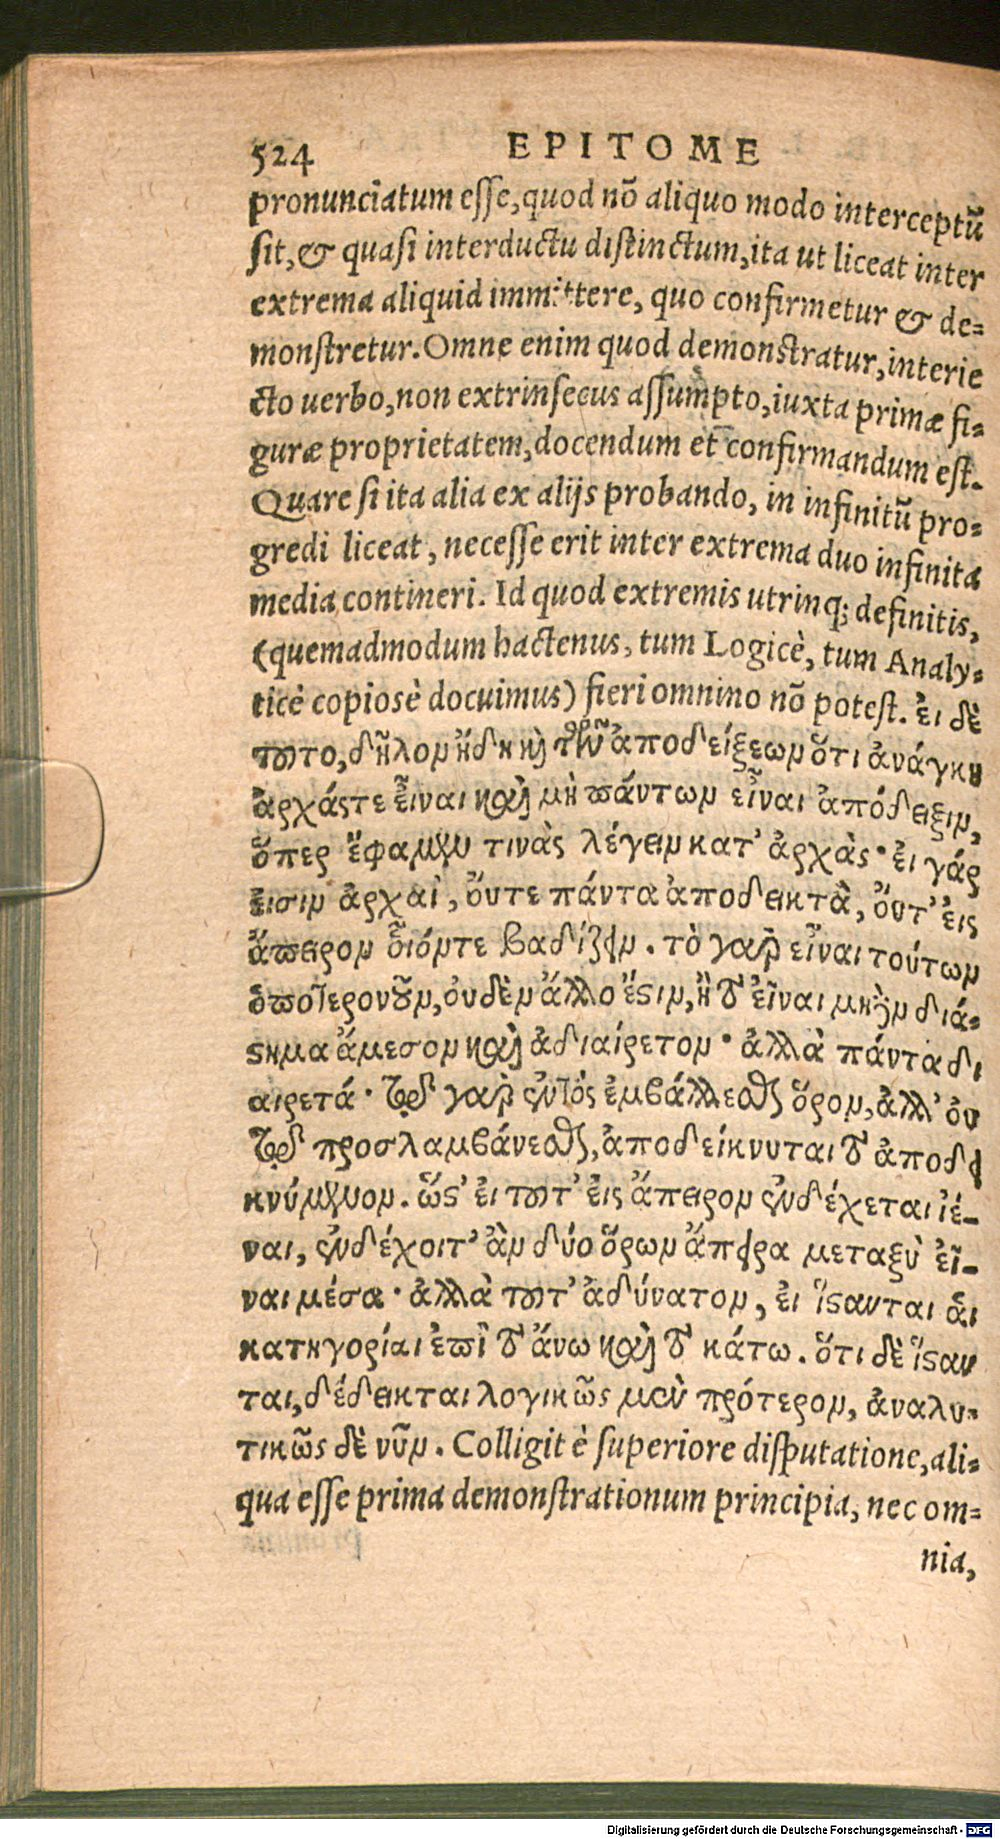 524 EPITOME
pronunciatum esse, quod nõ aliquo modo interceptũ
sit, & quasi interductu distinctum, ita ut liceat inter
extrema aliquid immittere, quo confirmetur & de=
monstretur. Omne enim quod demonstratur, interie
cto uerbo, non extrinsecus assumpto, iuxta primæ fi=
guræ proprietatem, docendum et confirmandum est.
Quare si ita alia ex alijs probando, in infinitũ pro=
gredi liceat, necesse erit inter extrema duo infinita
media contineri. Id quod extremis utrinq; definitis,
(quemadmodum hactenus, tum Logicè, tum Analy=
ticè copiosè docuimus) fieri omnino nõ potest. ἐι δὲ
τοῦτο, δῆλον ἤδη καὶ τῶν ἀποδείξεων ὅτι ἀνάγκη
ἀρχάς τε ἐῖναι καὶ μὴ πάντων εἶναι ἀπόδειξιν,
ὅπερ ἔφαμεν τινὰς λέγειν κατ' ἀρχὰς· ἐι γάρ
ἐισιν ἀρχαὶ, ὄυτε πάντα ἀποδεικτὰ, ὄυτ' ἐις
ἄπειρον οἷόντε βαδίζειν. τὸ γὰρ εἶναι τούτων
ὁποτερονοῦν, ὀυδὲν ἄλλο ἔστιν, ἢ τὸ ἐῖναι μηδὲν διά=
στημα ἄμεσον καὶ ἀδιαίρετον· ἀλλὰ πάντα δι
αιρετά· τῷ γὰρ ἐντός ἐμβάλλεσθαι ὅρον, ἀλλ' ὀυ
τῷ προσλαμβάνεσθαι, ἀποδείκνυται τὸ ἀποδει
κνύμενον. ὥστ' ἐι τοῦτ' ἐις ἄπειρον ἐνδέχεται ἰέ=
ναι, ἐνδέχοιτ' ἂν δύο ὅρων ἄπειρα μεταξὺ ἐῖ=
ναι μέσα· ἀλλὰ τοῦτ' ἀδύνατον, ἐι ἵστανται ἁι
κατηγορίαι ἐπὶ τὸ ἄνω καὶ τὸ κάτω. ὅτι δὲ ἵσταν
ται, δέδεικται λογικῶς μὲν πρότερον, ἀναλυ=
τικῶς δὲ νῦν. Colligit è superiore disputatione, ali=
qua esse prima demonstrationum principia, nec om=
nia,
Digitalisierung gefördert durch die Deutsche Forschungsgemeinschaft - DFG